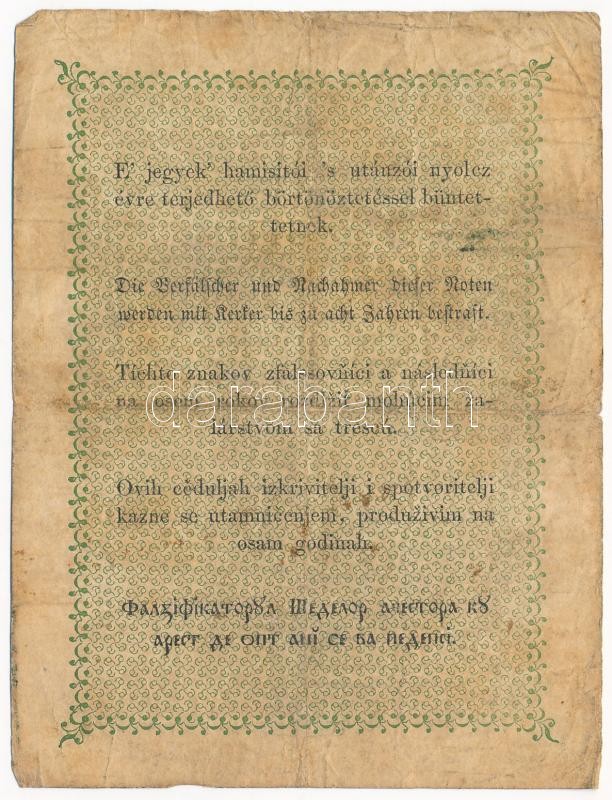 E' jegyek' hamisitói 's utánzói nyolcz
évre terjedhető börtönöztetéssel büntet-
tetnek.
Die Verfälscher und Nachahmer dieser Noten
werden mit Kerker bis zu acht Jahren bestraft.
Tichto znakov zfalšovňíci a následňíci
na osem rokov rozdžiť mohúcím ža-
lárstvom sa trescú.
darabanth
Ovih cèduljah izkrivitelji i spotvoritelji
kazne se utamničenjem, produživim na
osam godinah.
Фалзіфікаторꙋл Шеделор ачестора кꙋ
арест де опт анй се ва педепсі.